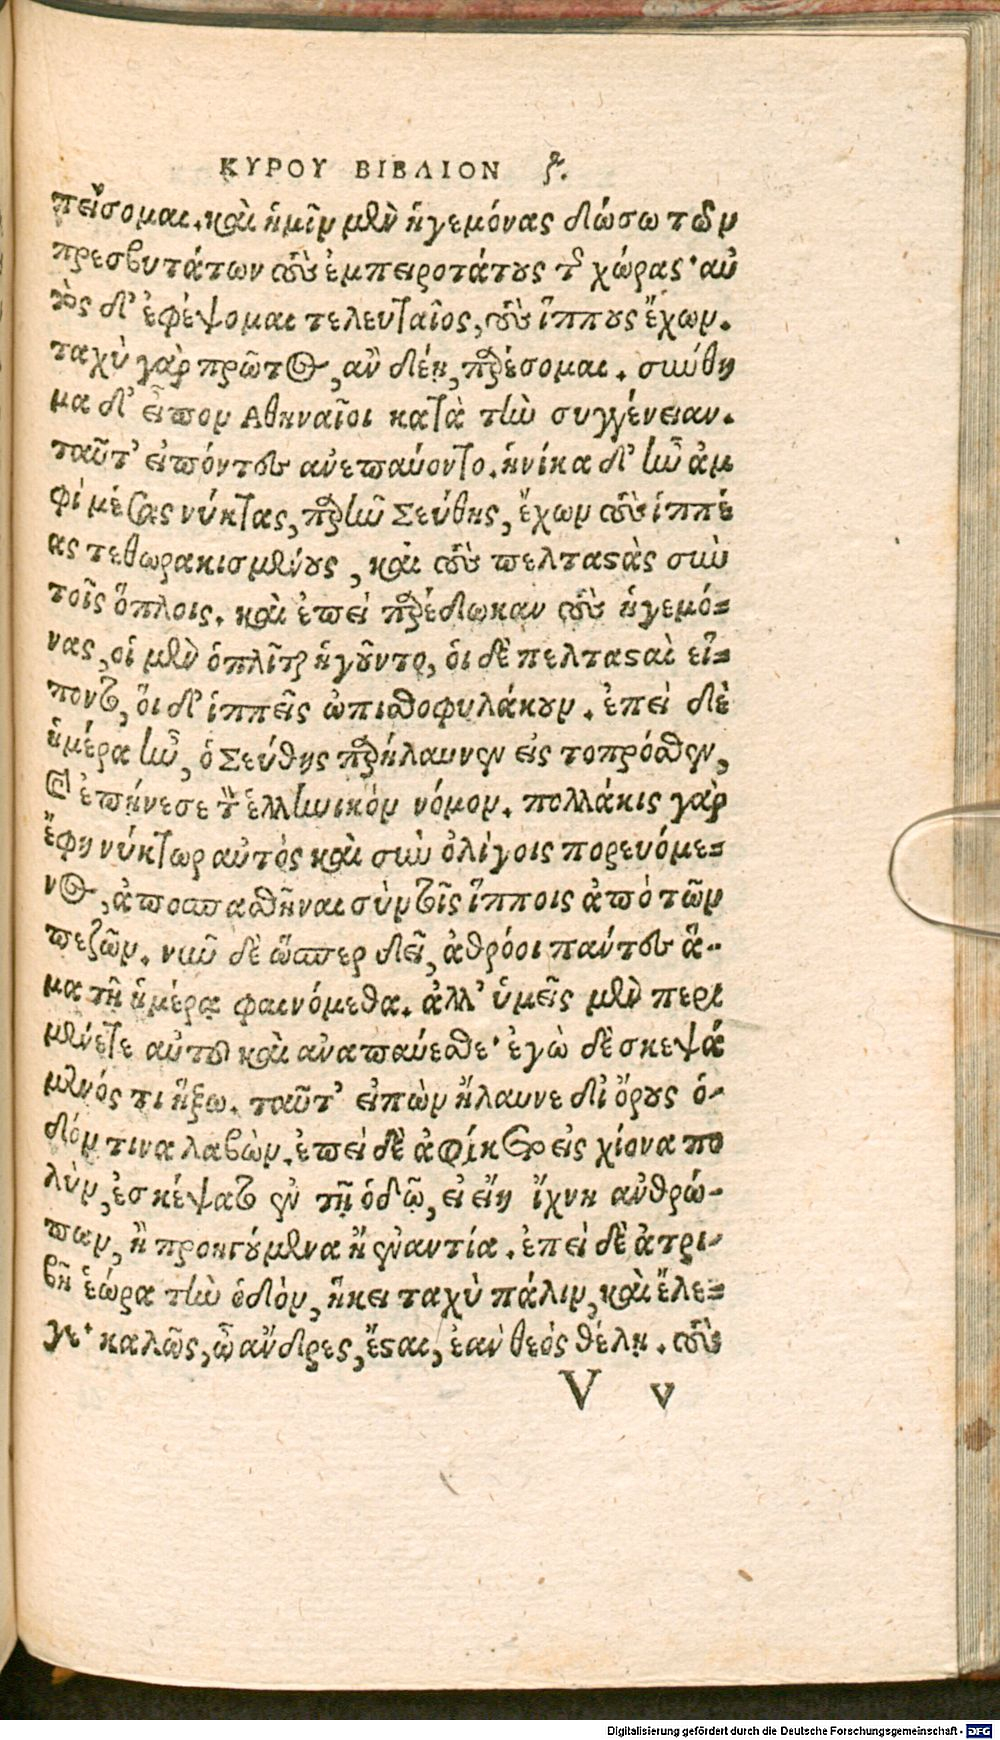 ΚΥΡΟΥ ΒΙΒΛΙΟΝ ζ.
πείσομαι. καὶ ἡμῖν μὲν ἡγεμόνας δώσω τῶν
πρεσβυτάτων τοὺς ἐμπειροτάτους τῆς χώρας· αὐ
τὸς δ' ἐφέψομαι τελευταῖος, τοὺς ἵππους ἔχων.
ταχὺ γὰρ πρῶτος, ἂν δέῃ, παρέσομαι. σύνθη
μα δ' εἶπον Αθηναῖοι κατὰ τὴν συγγένειαν.
ταῦτ' εἰπόντες ἀνεπαύοντο. ἡνίκα δ' ἦν ἀμ
φὶ μέσας νύκτας, παρῆν Σεύθης, ἔχων τοὺς ἱππέ
ας τεθωρακισμένους, καὶ τοὺς πελταστὰς σὺν
τοῖς ὅπλοις. καὶ ἐπεὶ παρέδωκαν τοὺς ἡγεμό=
νας, οἱ μὲν ὁπλῖται ἡγοῦντο, οἱ δὲ πελτασταὶ εἵ=
ποντο, οἱ δ' ἱππεῖς ὠπισθοφυλάκουν. ἐπεὶ δὲ
ἡμέρα ἦν, ὁ Σεύθης παρήλαυνεν εἰς τοπρόσθεν,
καὶ ἐπῄνεσε τὸν ἑλληνικὸν νόμον. πολλάκις γὰρ
ἔφη νύκτωρ αὐτὸς καὶ σὺν ὀλίγοις πορευόμε=
νος, ἀποσπασθῆναι σὺν τοῖς ἵπποις ἀπὸ τῶν
πεζῶν. νῦν δὲ ὥσπερ δεῖ, ἀθρόοι πάντες ἅ-
μα τῇ ἡμέρᾳ φαινόμεθα. ἀλλ' ὑμεῖς μὲν περι
μένετε αὐτοῦ καὶ ἀναπαύεσθε· ἐγὼ δὲ σκεψά
μενός τι ἥξω. ταῦτ' εἰπὼν ἤλαυνε δι' ὄρους ὁ-
δόν τινα λαβών. ἐπεὶ δὲ ἀφίκετο εἰς χίονα πο
λὺν, ἐσκέψατο ἐν τῇ ὁδῷ, εἰ εἴη ἴχνη ἀνθρώ-
πων, ἢ προηγούμενα ἢ ἐναντία. ἐπεὶ δὲ ἀτρι-
βῆ ἑώρα τὴν ὁδὸν, ἧκει ταχὺ πάλιν, καὶ ἔλε=
γε· καλῶς, ὦ ἄνδρες, ἔσται, ἐὰν θεὸς θέλῃ. τοὺς
V v
Digitalisierung gefördert durch die Deutsche Forschungsgemeinschaft - DFG